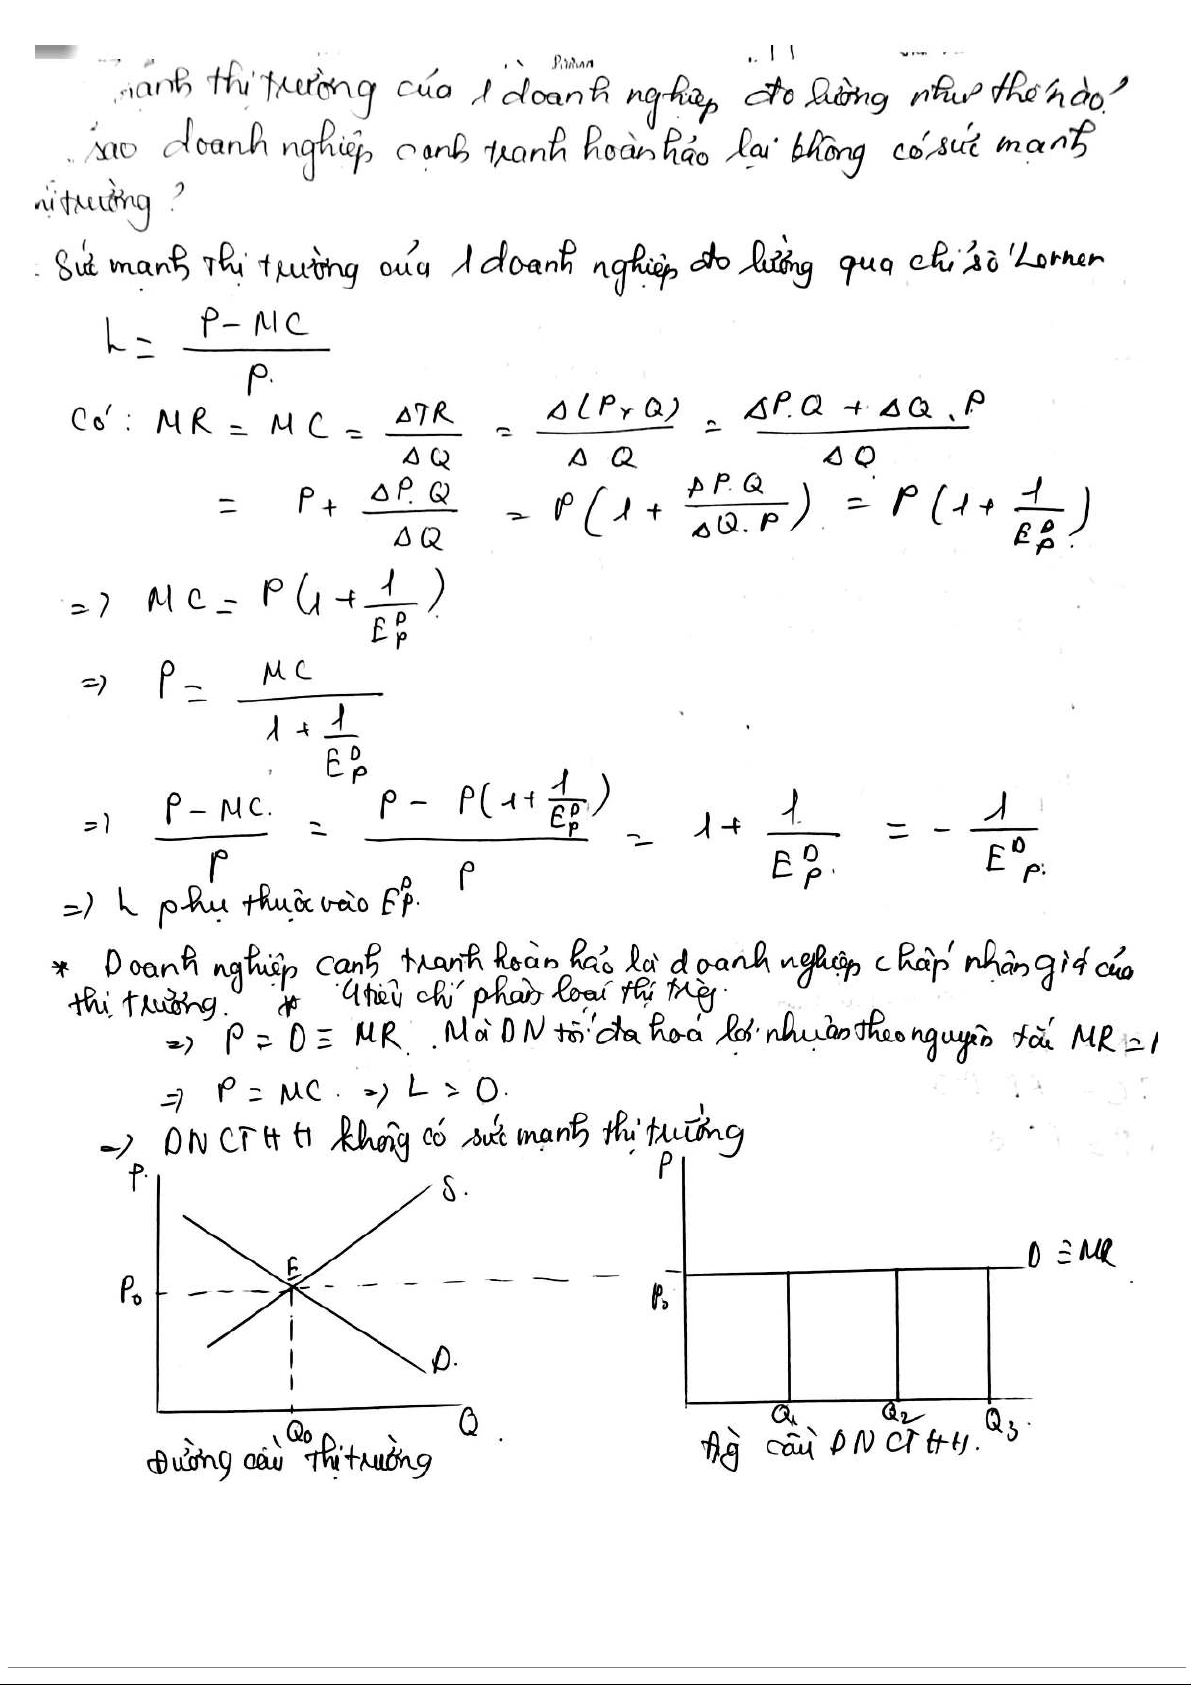 mạnh thị trường của 1 doanh nghiệp đo lường như thế nào?
sao doanh nghiệp cạnh tranh hoàn hảo lại không có sức mạnh
thị trường?
: Sức mạnh thị trường của 1 doanh nghiệp đo lường qua chỉ số Lerner
L = (P - MC) / P.
Có: MR = MC = ΔTR/ΔQ = Δ(P x Q)/ΔQ = (ΔP.Q + ΔQ.P)/ΔQ
= P + ΔP.Q/ΔQ = P(1 + ΔP.Q/ΔQ.P) = P(1 + 1/E^D_P)
=> MC = P(1 + 1/E^D_P)
=> P = MC / (1 + 1/E^D_P)
=> (P - MC)/P = (P - P(1 + 1/E^D_P))/P = 1 + 1/E^D_P = - 1/E^D_P.
=> L phụ thuộc vào E^D_P.
* Doanh nghiệp cạnh tranh hoàn hảo là doanh nghiệp chấp nhận giá của
thị trường. * 4 tiêu chí phân loại thị trg.
=> P = D ≡ MR. Mà DN tối đa hoá lợi nhuận theo nguyên tắc MR =
=> P = MC. => L = 0.
=> DNCTHH không có sức mạnh thị trường
P. S. P
E D ≡ MR
P₀ P₀
D.
Q₀ Q Q₁ Q₂ Q₃.
Đường cầu thị trường Đg cầu DNCTHH.